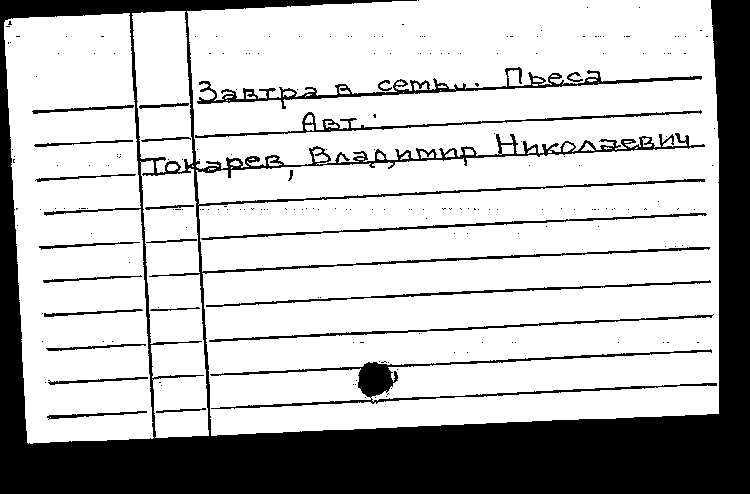 Завтра в семь... Пьеса
Авт.:
Токарев, Владимир Николаевич